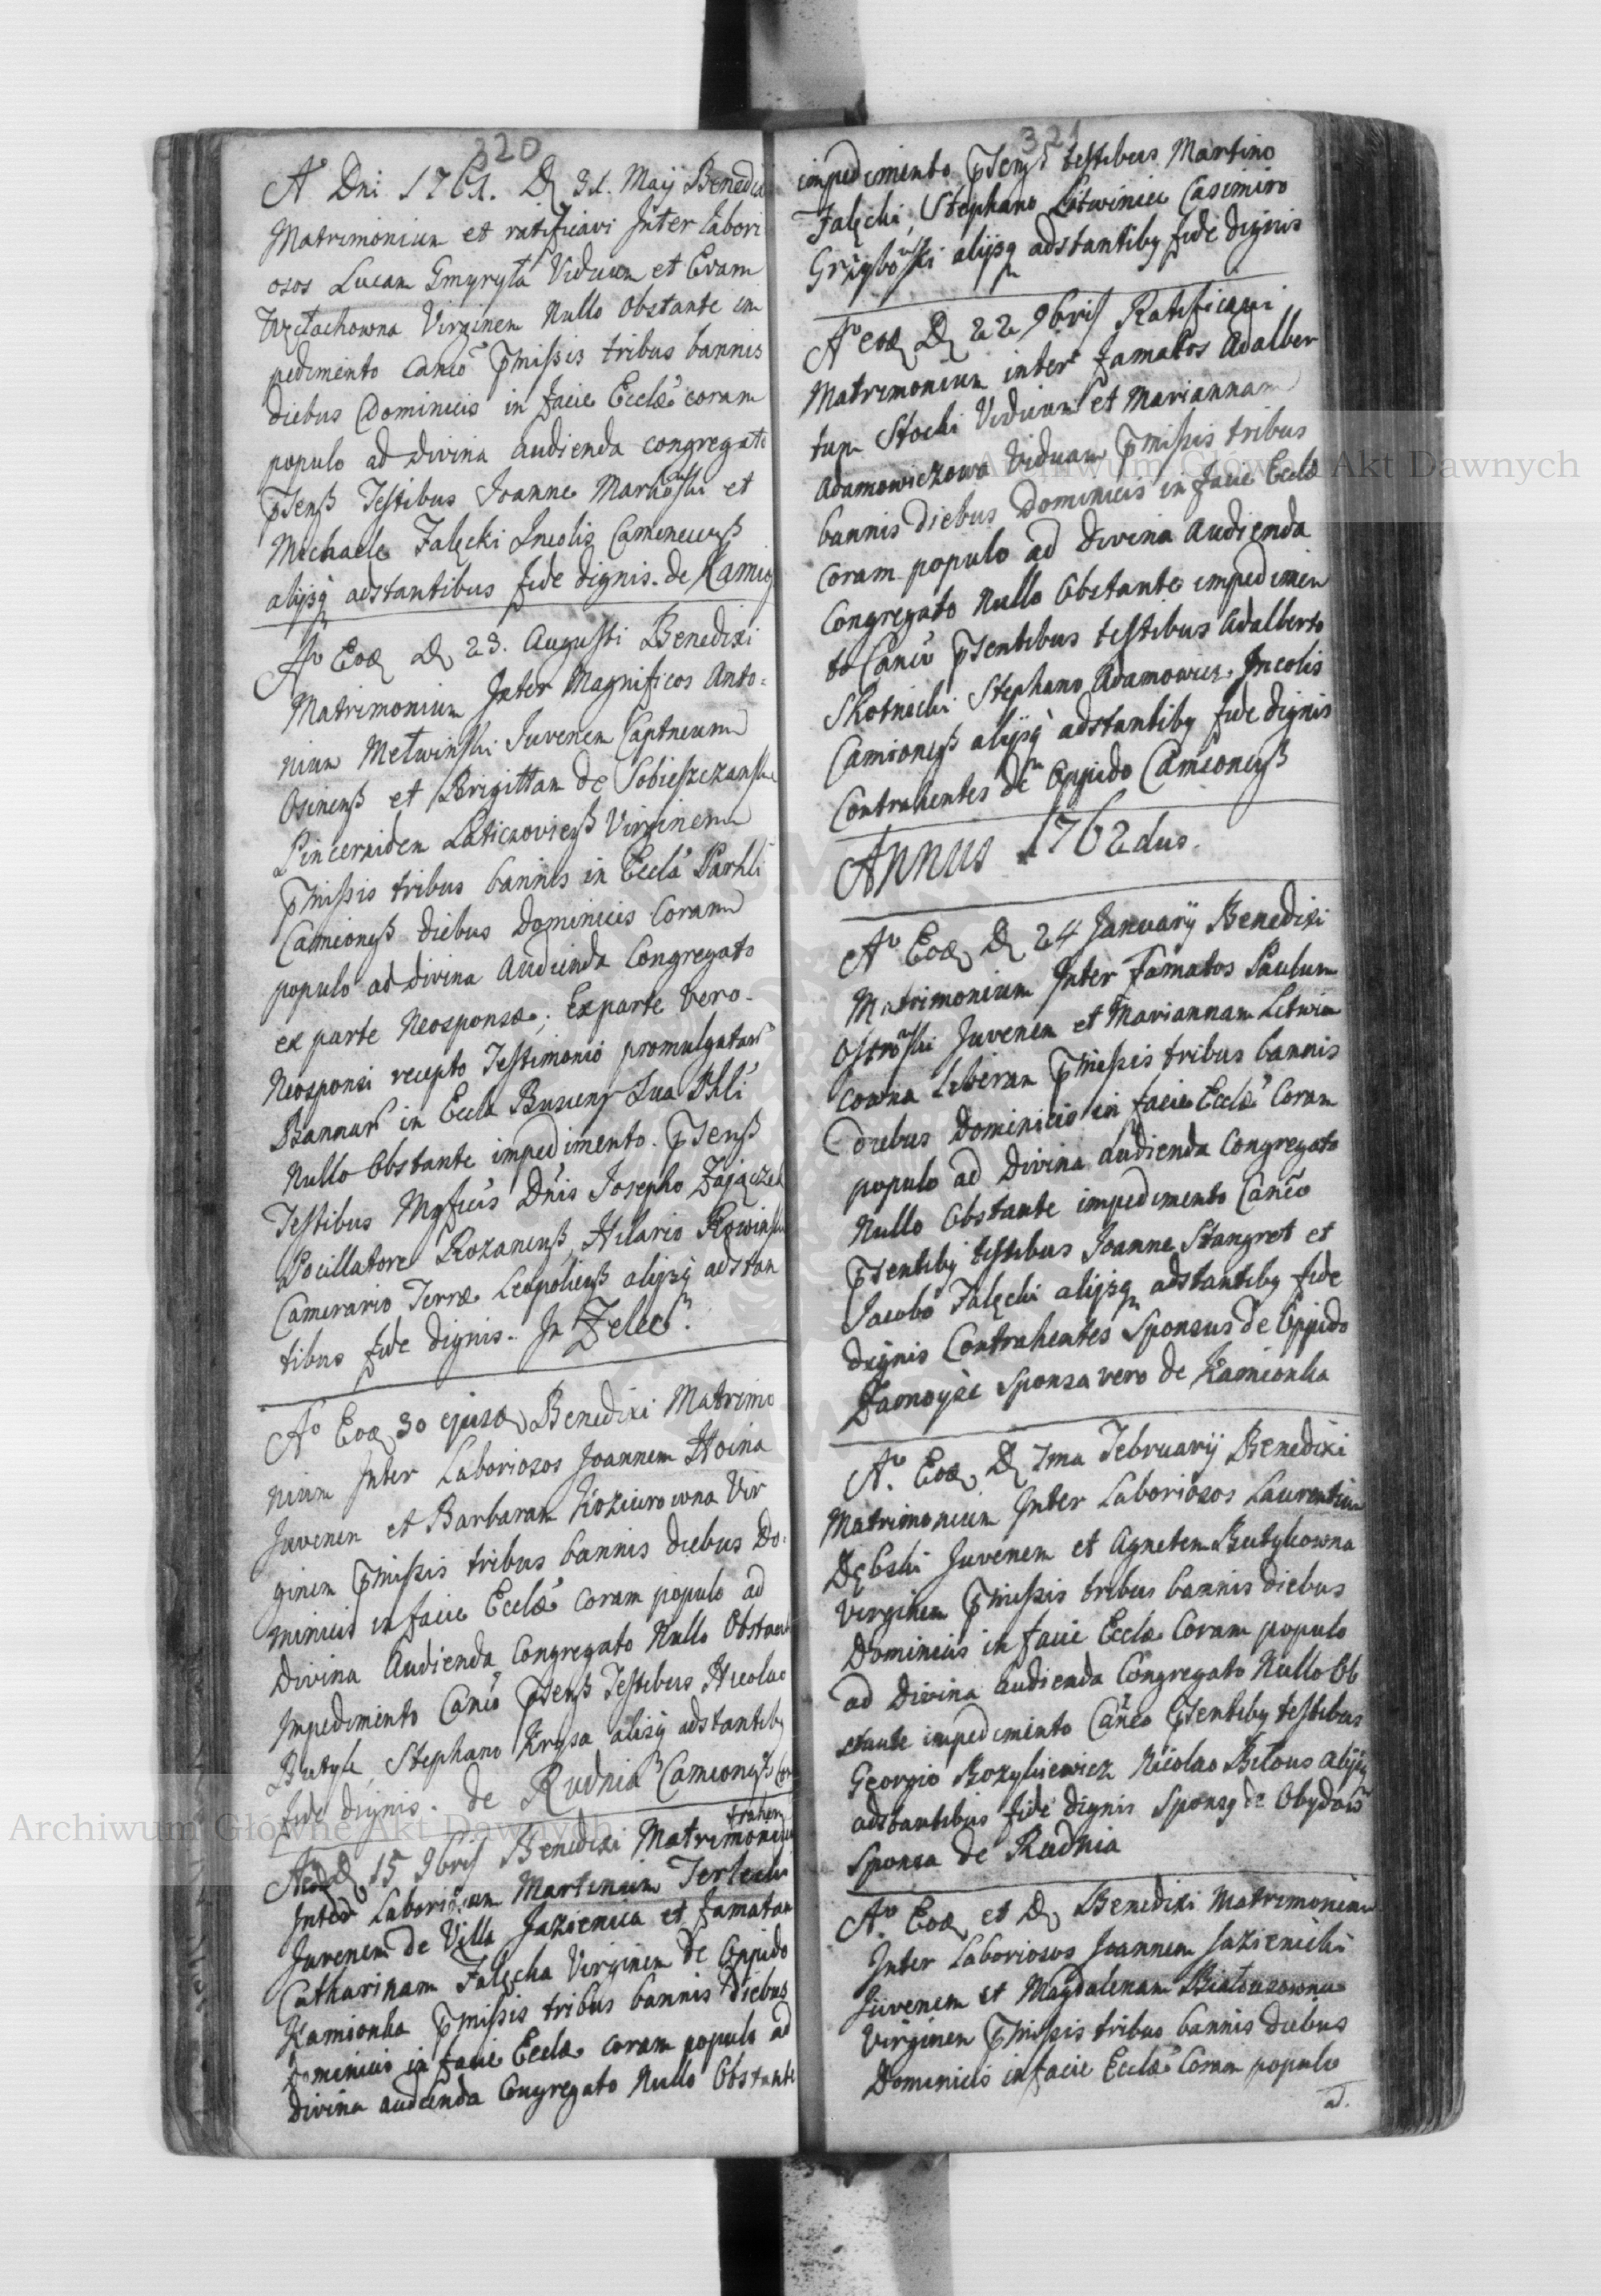 320
A° Dni 1761. D 31. Maij Benedixi
Matrimonium et ratificavi Inter labori
osos Lucam Gmyryła Viduum et Evam
Virginem Nullo Obstante im
pedimento Canco pmissis tribus bannis
diebus Dominicis in facie Eccłæ coram
populo ad divina audienda congregato
psenß Testibus Joanne Markowski et
Michaele Falęcki Incolis Camenecenß
alijsq adstantibus fide dignis. de Kamio
A° Eod D 23. Augusti Benedixi
Matrimonium Inter Magnificos Anto=
nium Metwinski Juvenem Captneum
Osinenß et Brigittam de Sobieszczanski
Pincernidem Laticzovienß Virginem
pmissis tribus bannis in Eccla Parhli
Camionenß diebus Dominicis Coram
populo ad divina Audienda Congregato
ex parte Neosponsæ; Ex parte Vero.
Neosponsi recepto Testimonio promulgatar
Bannar in Eccla Buscenß Sua Phli
Nullo Obstante impedimento. psenß
Testibus Mgficis Dnis Josepho Zajączek
Pocillatore Rozanenß, Hilario Rowinski
Camerario Terræ Leopolienß alijsq adstan
tibus fide dignis. In Zelec.
A° Eod 30 ejusd Benedixi Matrimo
nium Inter Laboriosos Joannem Hoina
Juvenem et Barbaram Kozieurowna Vir
ginem pmissis tribus bannis diebus Do=
minicis in facie Eccłæ Coram populo ad
divina Audienda Congregato Nullo Obstant
Impedimento Canco psenß Testibus Nicolao
Butyk, Stephano Krysa alijsq adstantib9
fide dignis. de Rudnia Camionenß Con
trahen
A° eod D 15 9bris Benedixi Matrimonium
Inter Laboriosum Martinum Terlecki
Juvenem de Villa Jazienica et famatam
Catharinam Falęcka Virginem de Oppido
Kamionka pmissis tribus bannis diebus
Dominicis in facie Eccłæ coram populo ad
divina audienda Congregato Nullo Obstante
321
impedimento psenß testibus Martino
Falęcki, Stephano Litwinicz Casimiro
Grzybowski alijsq adstantib9 fide dignis
A° eod D 22 9bris Ratificavi
Matrimonium inter famatos Adalber
tum Stocki Viduum et Mariannam
Adamowiczowa Viduam pmissis tribus
bannis diebus Dominicis in facie Eccłæ
Coram populo ad Divina Audienda
Congregato Nullo Obstante impedimen
to Canco psentibus testibus Adalberto
Skotnicki Stephano Adamowicz Incolis
Camionenß alijsq adstantib9 fide dignis
Contrahentes de Oppido Camionenß
Annus 1762dus.
A° Eod D 24 Januarij Benedixi
Matrimonium Inter Famatos Paulum
Ostrowski Juvenem et Mariannam Litwin
cowna Liberam pmissis tribus bannis
diebus Dominicis in facie Eccłæ Coram
populo ad Divina audienda Congregato
Nullo Obstante impedimento Canco
psentib9 testibus Joanne Stangret et
Jacobo Falęcki alijsq adstantib9 fide
dignis Contrahentes Sponsus de Oppido
Zamoysc Sponsa vero de Kamionka
A° Eod D 7ma Februarij Benedixi
Matrimonium Inter Laboriosos Laurentium
Dębski Juvenem et Agnetem Butykowna
Virginem pmissis tribus bannis diebus
Dominicis in facie Eccłæ Coram populo
ad Divina audienda Congregato Nullo Ob
stante impedimento Canco psentib9 testibus
Georgio Bozykiewicz Nicolao Biłous alijsq
adstantibus fide dignis Spons9 de Obydow
Sponsa de Rudnia
A° Eod et D Benedixi Matrimonium
Inter Laboriosos Joannem Jazienicki
Juvenem et Magdalenam Białousowna
Virginem pmissis tribus bannis diebus
Dominicis in facie Eccłæ Coram populo
ad.
Archiwum Główne Akt Dawnych
Archiwum Główne Akt Dawnych